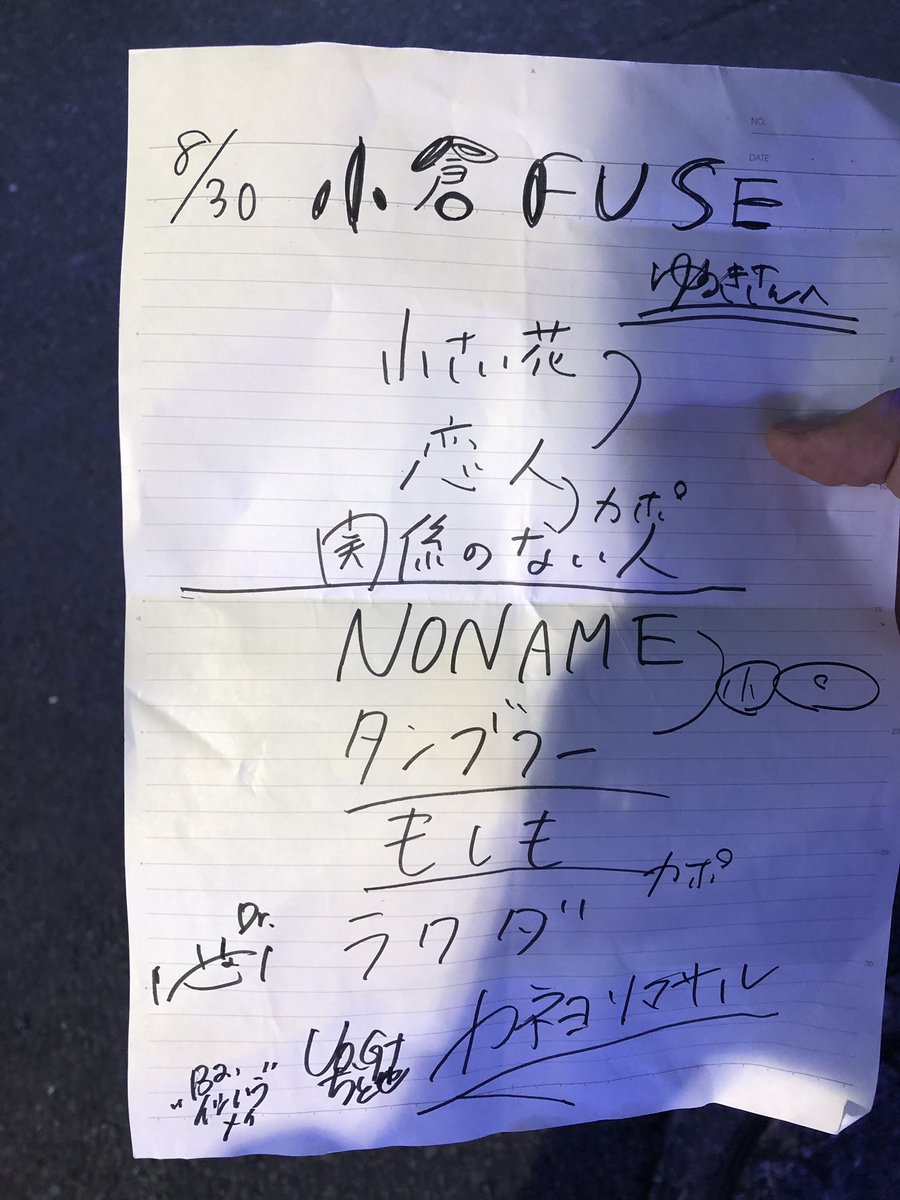 NO.
DATE
8/30 小倉 FUSE
ゆうきさんへ
小さい花
恋人
カポ
関係のない人
NONAME
小
タンブラー
もしも
カポ
ラクダ
Dr.
カネヨリマサル
Ba.